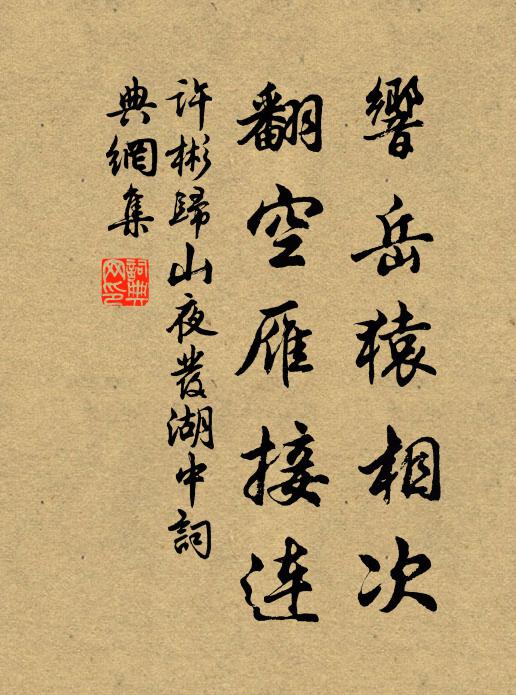 響岳猿相次
翻空雁接連
許彬歸山夜發湖中詞
典網集
詞典
网印